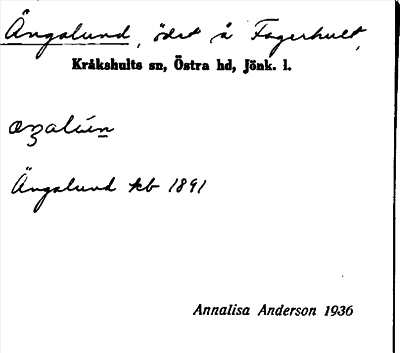 Ängslund, ödet å Fagerhult,
Kråkshults sn, Östra hd, Jönk. l.
Ängalund kb 1891
Annalisa Anderson 1936